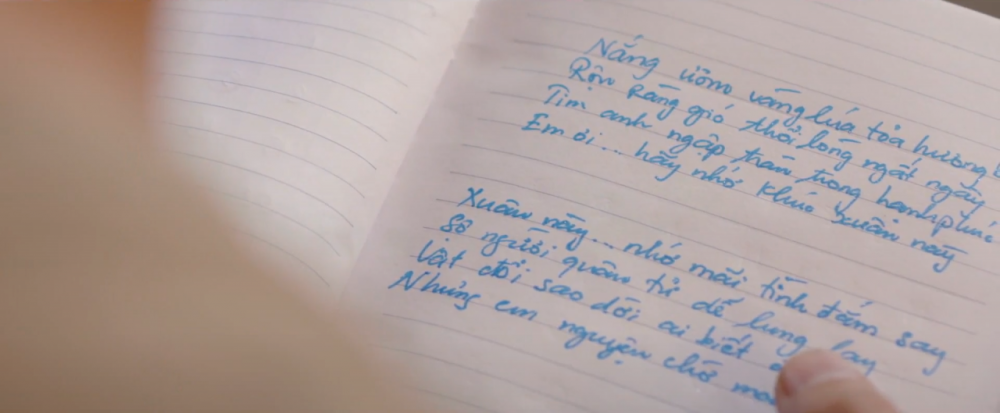 Nắng ươm vàng lúa tỏa hương
Rộn Ràng gió thổi lòng ngất ngây
Tim anh ngập tràn trong hạnh phúc
Em ơi... hãy nhớ khúc xuân này
Xuân này... nhớ mãi tình đắm say
Sợ người quân tử dễ lung lay
Vật đổi sao dời ai biết
Nhưng em nguyện chờ